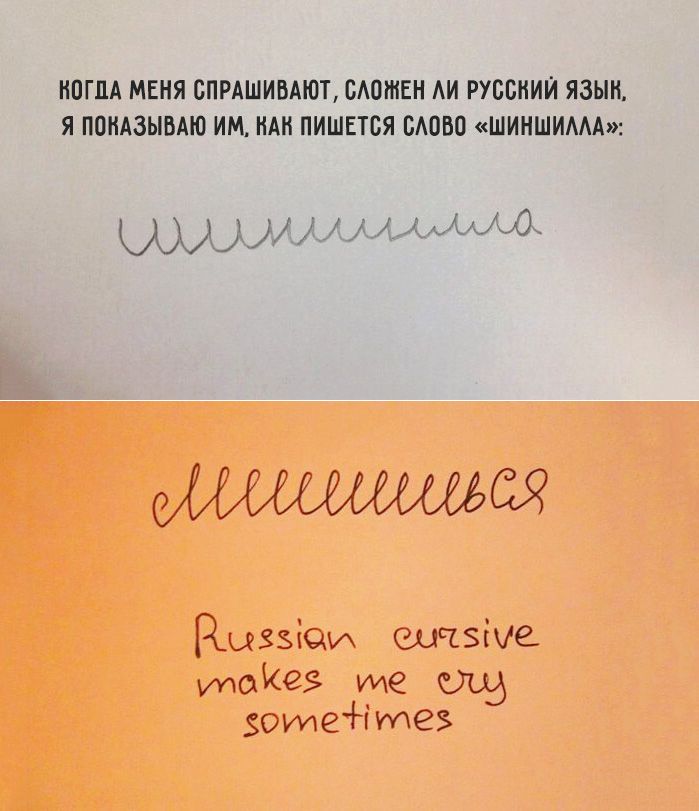 КОГДА МЕНЯ СПРАШИВАЮТ, СЛОЖЕН ЛИ РУССКИЙ ЯЗЫК,
Я ПОКАЗЫВАЮ ИМ, КАК ПИШЕТСЯ СЛОВО «ШИНШИЛЛА»:
шиншилла
Лишишься
Russian cursive
makes me cry
sometimes